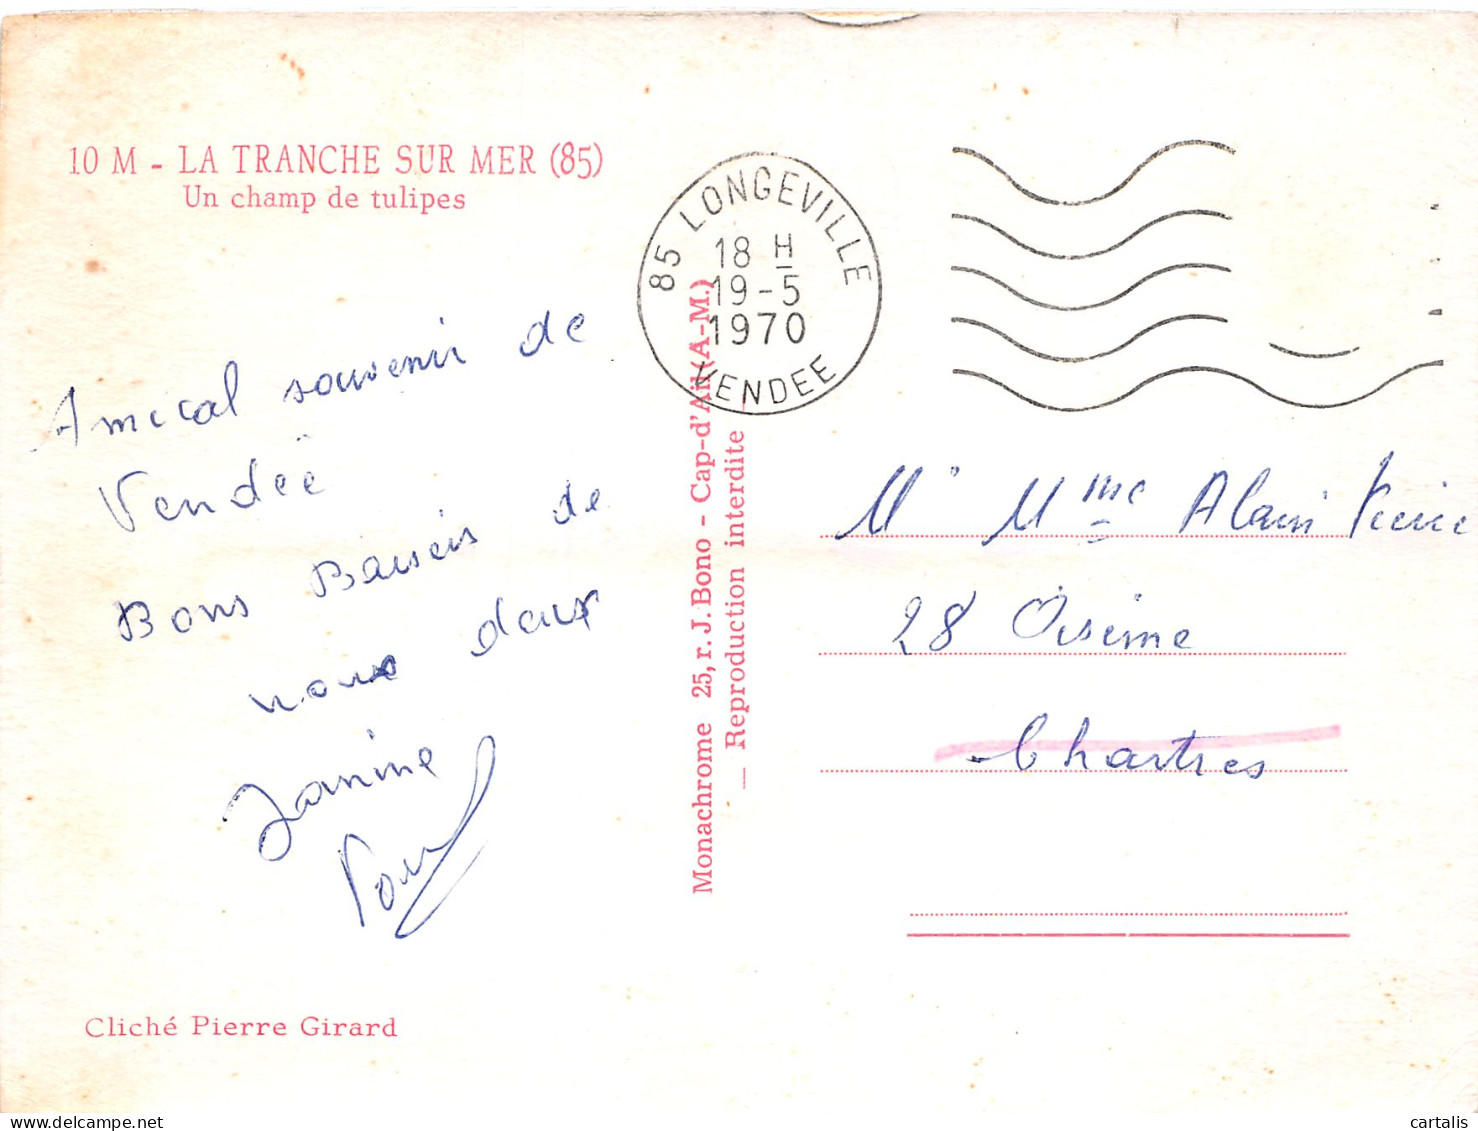 10 M - LA TRANCHE SUR MER (85)
Un champ de tulipes
85 LONGEVILLE
18 H
19-5
1970
VENDEE
Amical souvenir de
Vendée
Bons Baisers de
nous deux
Janine
Paul
Cliché Pierre Girard
Monachrome 25, r. J. Bono - Cap-d'Ail (A-M.)
— Reproduction interdite —
Mr Mme Alain
28 Oisème
Chartres
delcampe.net
cartalis